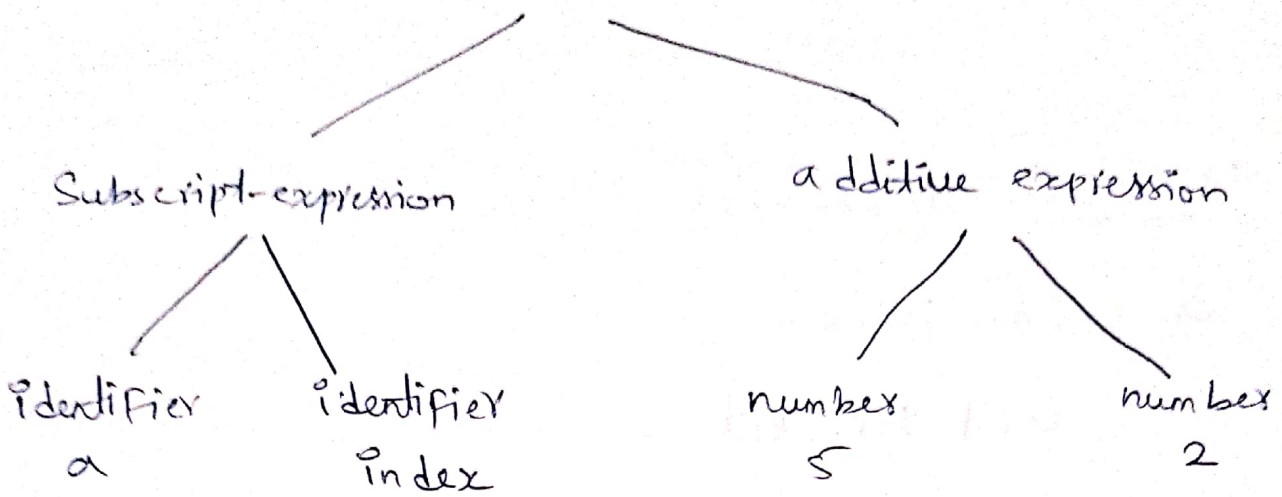 Subscript-expression additive expression
identifier identifier number number
a index 5 2